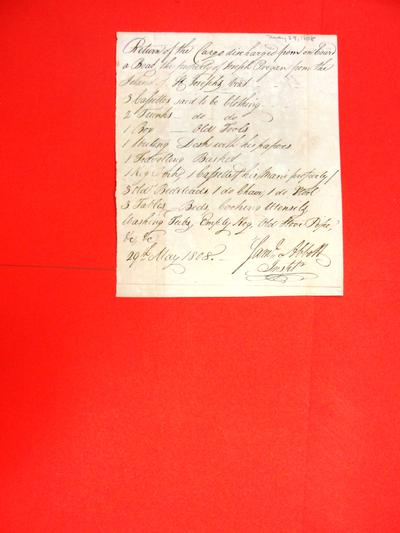 May 29, 1808
Return of the Cargo discharged from on board
a Boat the property of Joseph from the
Island of St Josephs Vizt.
3 Cassettes said to be Clothing.
2 Trunks — do — do
1 Box — Old Tools
1 Writing Desk with his papers
1 Travelling Basket
1 Keg 1 Cassette of his Mans property
3 Old Bedsteads 1 do Chair, 1 do
3 Tables — Beds, Cooking Utensels
Washing Tubs, Empty Keg, Old Stove Pipe,
&c &c
29th May 1808. — Saml. Abbott